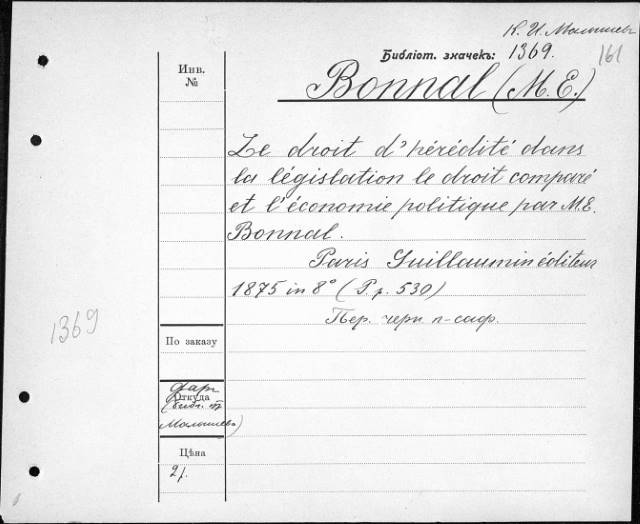 К. И. Малышев
Библіот. значекъ: 1369.
161
Bonnal (M. E.)
Инв.
№
Le droit d'hérédité dans
la législation le droit comparé
et l'économie politique par M.E.
Bonnal.
Paris Guillaumin éditeur
1875 in 8° (P.p. 530)
Пер. черн.
1369
По заказу
Откуда
Дар
Малышева)
Цѣна
2 р.